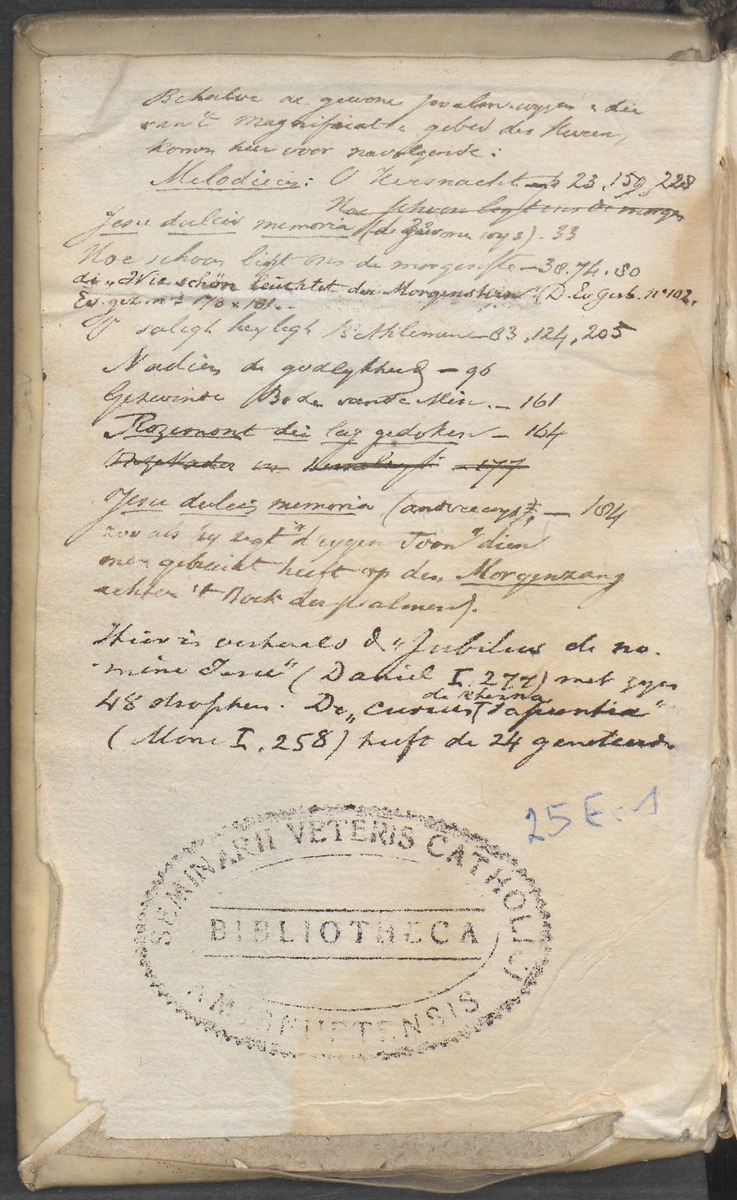 Behalve de gewone psalmwyzen & die
van 't magnificat & gebed des Heeren,
komen hier voor navolgende:
Melodieën: O Kersnacht - p 23, 159, 228
Hoe schoon ligt ons de morgen
Jesu dulcis memoria (de gewone wys). 33
Hoe schoon ligt ons de morgenste - 38.74.80
d.i. „Wie schön leuchtet der Morgenstern" (D. Ev. Gesb. no 102.
Ev. gez. no 178 & 181.
O saligh heyligh Bethlehem - 83, 124, 205
Nadien de godlykheid - 96
Gezwinde Bode vande Min. - 161
Rozemont die lag gedoken - 164
177
Jesu dulcis memoria (andre wys), - 184
zoo als hy zegt "d'eygen Toon" dien
men gebruikt heeft op den Morgenzang
achter 't Boek der psalmen).
Hier is verhaald d' „Jubilus de no-
mine Jesu" (Daniel I, 277) met zyn
48 strophen. De „Cursus de aeterna Sapientia"
(Mone I, 258) heeft de 24
25 E: 1
SEMINARII VETERIS CATHOLICI
BIBLIOTHECA
AMORFURTENSIS